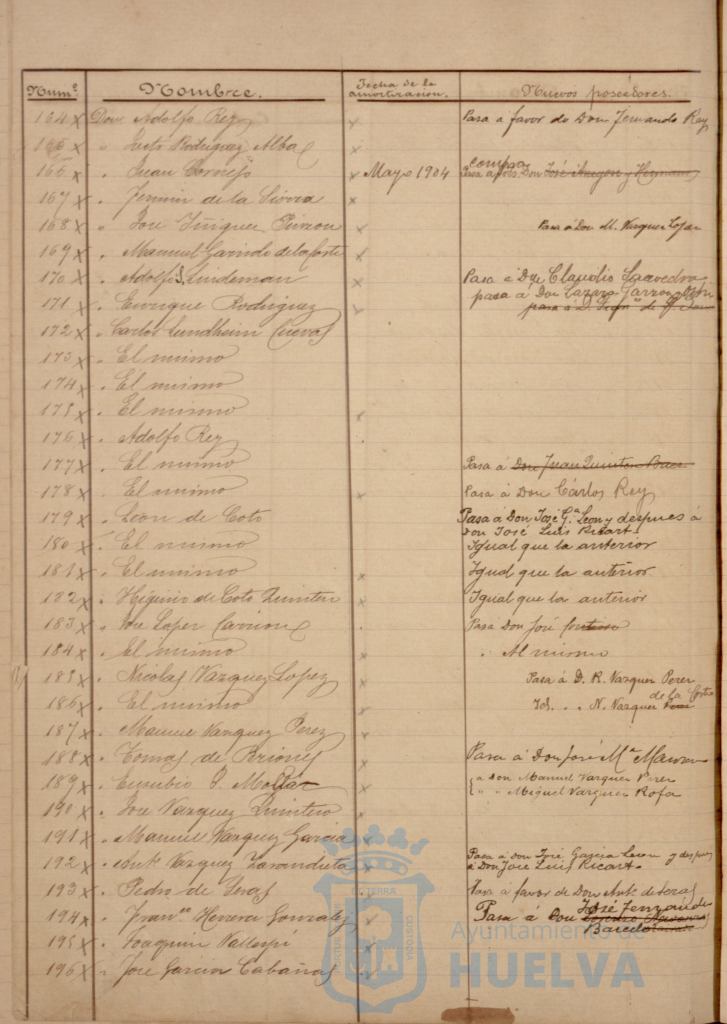 Num.º Nombre. Fecha de la amortizacion. Nuevos poseedores.
164 x Don Adolfo Rey Pasa á favor de Don Fernando Rey
165 x " Luis Rodriguez Alba
166 x " Juan Cornejo Mayo 1904 compra Pasa á Don José y Hermano
167 x " Fermin de la Sierra
168 x " Jose Iñiguez Pinzon Pasa á Don M. Vazquez Lopez
169 x " Manuel Garrido de la Corte
170 x " Adolfo Lindeman Pasa a D. Claudio Saavedra
pasa á Don Lazaro Garzon
171 x " Enrique Rodriguez pasa á D.
172 x " Carlos Sundheim Cuevas
173 x " El mismo
174 x " El mismo
175 x " El mismo
176 x " Adolfo Rey
177 x " El mismo Pasa á Don Juan Quintero
178 x " El mismo Pasa á Don Cárlos Rey
179 x " Leon de Coto Pasa á Don José G.ª Leon y despues á
Don José Luis Ricart.
180 x " El mismo Igual que la anterior
181 x " El mismo Igual que la anterior
182 x " Higinio de Coto Quintero Igual que la anterior
183 x " Jose Lopez Carrion Pasa Don José
184 x " El mismo " Al mismo
185 x " Nicolas Vazquez Lopez Pasa á D. R. Vazquez Perez
186 x " El mismo Id. " " N. Vazquez de la Corte
187 x " Manuel Vazquez Perez
188 x " Tomas de Briones Pasa á Don José M.ª
189 x " Eusebio Pasa á Don Manuel Vazquez Perez
" " Miguel Vazquez Rofa
190 x " Jose Vazquez Quintero
191 x " Manuel Vazquez Garcia
192 x " Ant.º Vazquez Zarandieta Pasa á Don José Garcia Leon y despues
á Don José Luis Ricart.
193 x " Pedro de Seras Pasa á favor de Don Ant.º de Seras
194 x " Fran.co Herrera Gonzalez Pasa á Don José Fernandez
Barcelo
195 x " Joaquin
196 x " Jose Garcia Cabañas
Ayuntamiento de
HUELVA